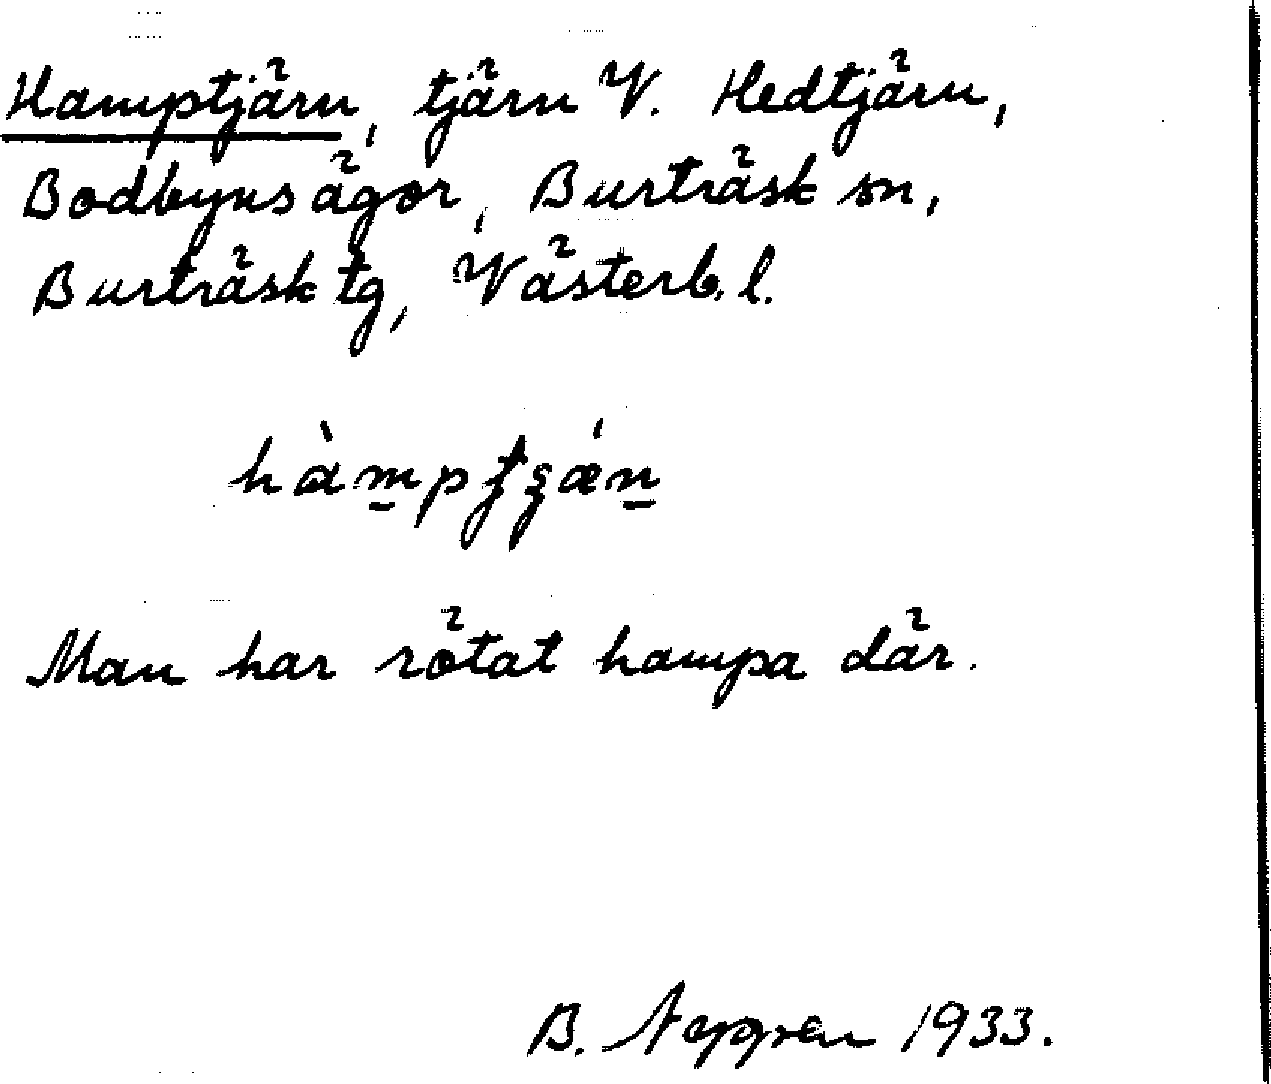 Hamptjärn, tjärn V. Hedtjärn,
Bodbyns ägor, Burträsk sn,
Burträsk tg, Västerb. l.
hàmptʂǽn
Man har rötat hampa där.
B. 1933.